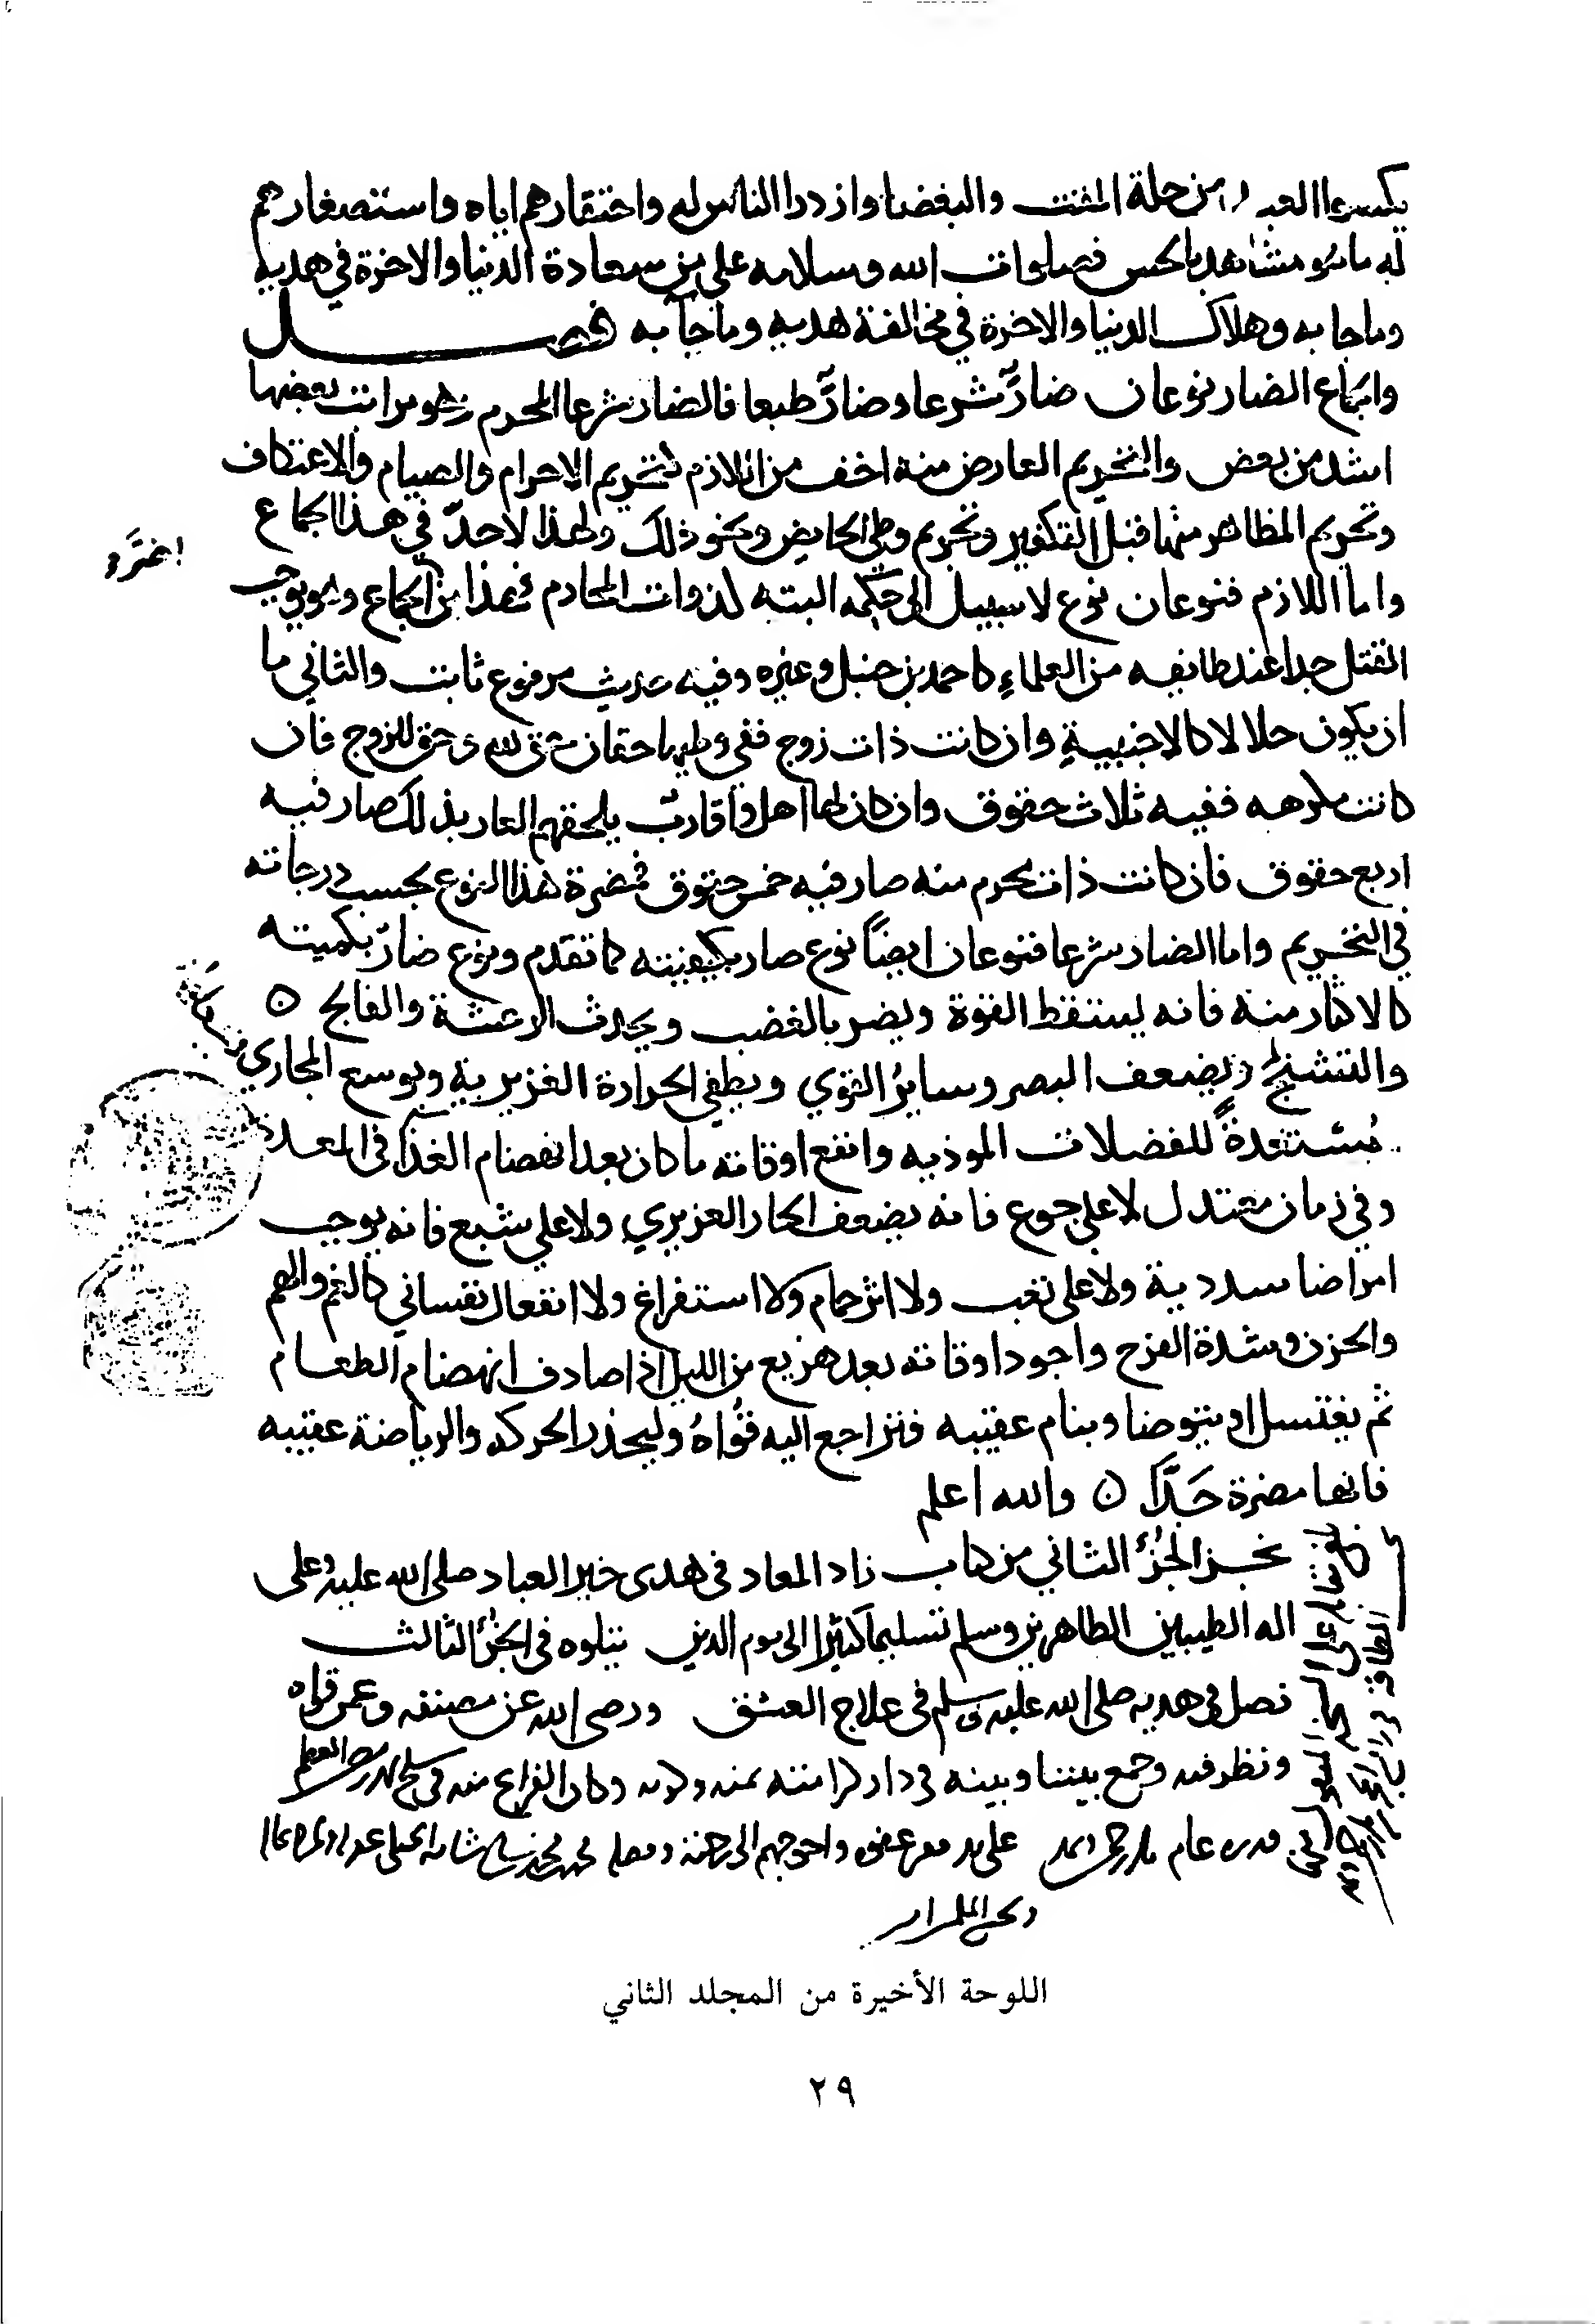 يكسوها العبد من حلة المقت والبغضا وازدرا الناس له واحتقارهم اياه واستصغارهم
له ما هو مشاهد بالحس فصلوات الله وسلامه على من سعادة الدنيا والاخرة في هديه
وما جا به وهلاك الدنيا والاخرة في مخالفة هديه وما جآ به فصل
والجماع الضار نوعان ضارٌّ شرعا وضارٌّ طبعا فالضار شرعا المحرم وهو مراتب بعضها
اشد من بعض والتحريم العارض منه اخف من اللازم كتحريم الاحرام والصيام والاعتكاف
وتحريم المظاهر منها قبل التكفير وتحريم وطي الحايض ونحو ذلك ولهذا لا حدّ في هذا الجماع
واما اللازم فنوعان نوع لا سبيل الى حله البته كذوات المحارم فهذا من الجماع وهو يوجب
القتل حدا عند طايفه من العلماء كاحمد بن حنبل وغيره وفيه حديث مرفوع ثابت والثاني ما
ان يكون حلالا كالاجنبية وان كانت ذات زوج ففي وطيها حقان حق لله وحق للزوج فان
كانت مكرهه ففيه ثلاث حقوق وان كان لها اهل واقارب يلحقهم العار بذلك صار فيه
اربع حقوق فان كانت ذات محرم منه صار فيه خمس حقوق فمضرة هذا النوع بحسب درجاته
في التحريم واما الضار شرعا فنوعان ايضاً نوع ضار بكيفيته كما تقدم ونوع ضارّ بكميته
كالاكثار منه فانه يسقط القوة ويضر بالغضب ويحدث الرعشة والفالج ن
والتشنج ويضعف البصر وساير القوي ويطفي الحرارة الغزيرية ويوسع المجاري
مُستعدة للفضلات الموذيه وانفع اوقاته ما كان بعد انهضام الغذا في المعدة
وفي زمان معتدل لا على جوع فانه يضعف الحار الغزيري ولا على شبع فانه يوجب
امراضا سددية ولا على تعب ولا اثر حمام ولا استفراغ ولا انفعال نفساني كالغم والهم
والحزن وشدة الفرح واجود اوقاته بعد هزيع من الليل اذا صادف انهضام الطعام
ثم يغتسل او يتوضا وينام عقيبه فتراجع اليه قُواهُ وليحذر الحركه والرياضة عقيبه
فانها مضرة جدّاً ن والله اعلم
نجز الجزء الثاني من كتاب زاد المعاد في هدى خير العباد صلى الله عليه وعلى
اله الطيبين الطاهرين وسلم تسليما كثيرا الى يوم الدين يتلوه في الجزء الثالث
فصل في هديه صلى الله عليه وسلم في علاج العشق ورضى الله عن مصنفه وعمن قراه
ونظر فيه وجمع بيننا وبينه في دار كرامته بمنه وكرمه وكان الفراغ منه في سلخ
اللوحة الأخيرة من المجلد الثاني
٢٩